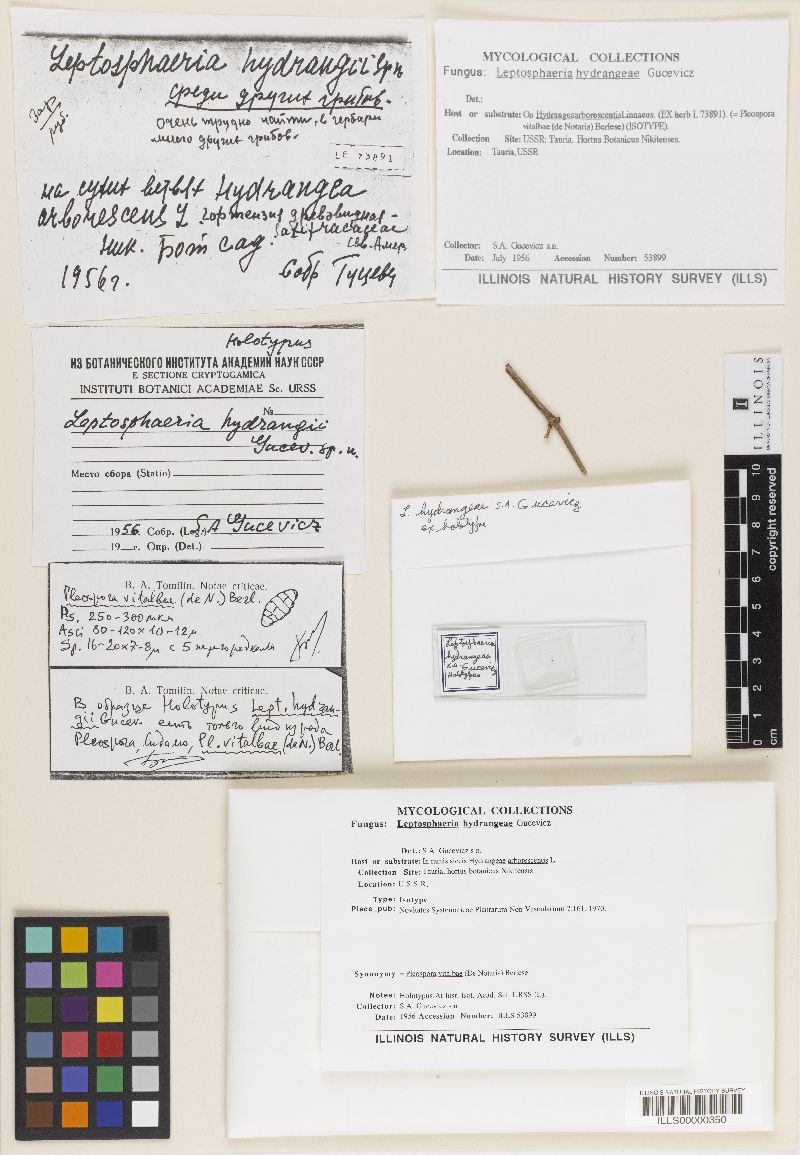 Leptosphaeria hydrangii Sp n
среди других грибов.
очень трудно найти, в гербарии
много других грибов.
LE 73891
на сухих ветвях Hydrangea
arborescens L гортензия древовидная -
Saxifragaceae
Ник. Бот сад. Сев. Амер
1956 г. Собр Гуцевич
MYCOLOGICAL COLLECTIONS
Fungus: Leptosphaeria hydrangeae Gucevicz
Det.:
Host or substrate: On HydrangeaarborescentisLinnaeus. (EX herb L 73891). (= Pleospora
vitalbae (de Notaris) Berlese) (ISOTYPE).
Collection Site: USSR: Tauria. Hortus Botanicus Nikitensis.
Location: Tauria, USSR
Collector: S.A. Gucevicz s.n.
Date: July 1956 Accession Number: 53899
ILLINOIS NATURAL HISTORY SURVEY (ILLS)
Holotypus
ИЗ БОТАНИЧЕСКОГО ИНСТИТУТА АКАДЕМИЙ НАУК СССР
E SECTIONE CRYPTOGAMICA
INSTITUTI BOTANICI ACADEMIAE Sc. URSS
№
Leptosphaeria hydrangii
Gucev. sp. n.
Место сбора (Statio)
1956. Собр. (Leg.) S.A Gucevicz
19 г. Опр. (Det.)
B. A. Tomilin. Notae criticae.
Pleospora vitalbae (de N.) Berl.
Ps. 250-300 мкм
Asci 80-120×10-12μ
Sp. 16-20×7-8μ с 5 перегородками
B. A. Tomilin. Notae criticae.
В образце Holotypus Lept. hydran-
gii Gucev. есть только вид из рода
Pleospora, видимо, Pl. vitalbae (de N.) Berl.
L. hydrangeae S.A. Gucevicz
ex holotype
Leptosphaeria
hydrangeae
S.A. Gucevicz
Holotypus
ILLINOIS
I
0 1 2 3 4 5 6 7 8 9 10
cm
copyright reserved
MYCOLOGICAL COLLECTIONS
Fungus: Leptosphaeria hydrangeae Gucevicz
Det.: S.A. Gucevicz s.n.
Host or substrate: In ramis siccis Hydrangeae arborescens L.
Collection Site: Tauria, hortus botanicus Nikitensis.
Location: U.S.S.R.
Type: Isotype
Place pub: Novitates Systematicae Plantarum Non Vascularium 7:161. 1970.
Synonymy = Pleospora vitalbae (De Notaris) Berlese
Notes: Holotypus: At Inst. Bot. Acad. Sci. URSS (L.).
Collector: S.A. Gucevicz s.n.
Date: 1956 Accession Number: ILLS 53899
ILLINOIS NATURAL HISTORY SURVEY (ILLS)
ILLINOIS NATURAL HISTORY SURVEY
ILLS00000350